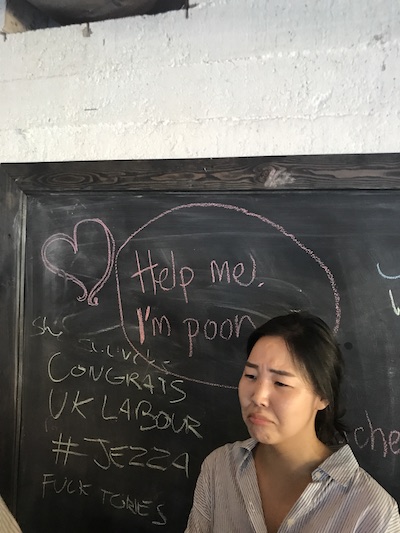 Help me!
I'm poor
CONGRATS
UK LABOUR
# JEZZA
FUCK TORIES